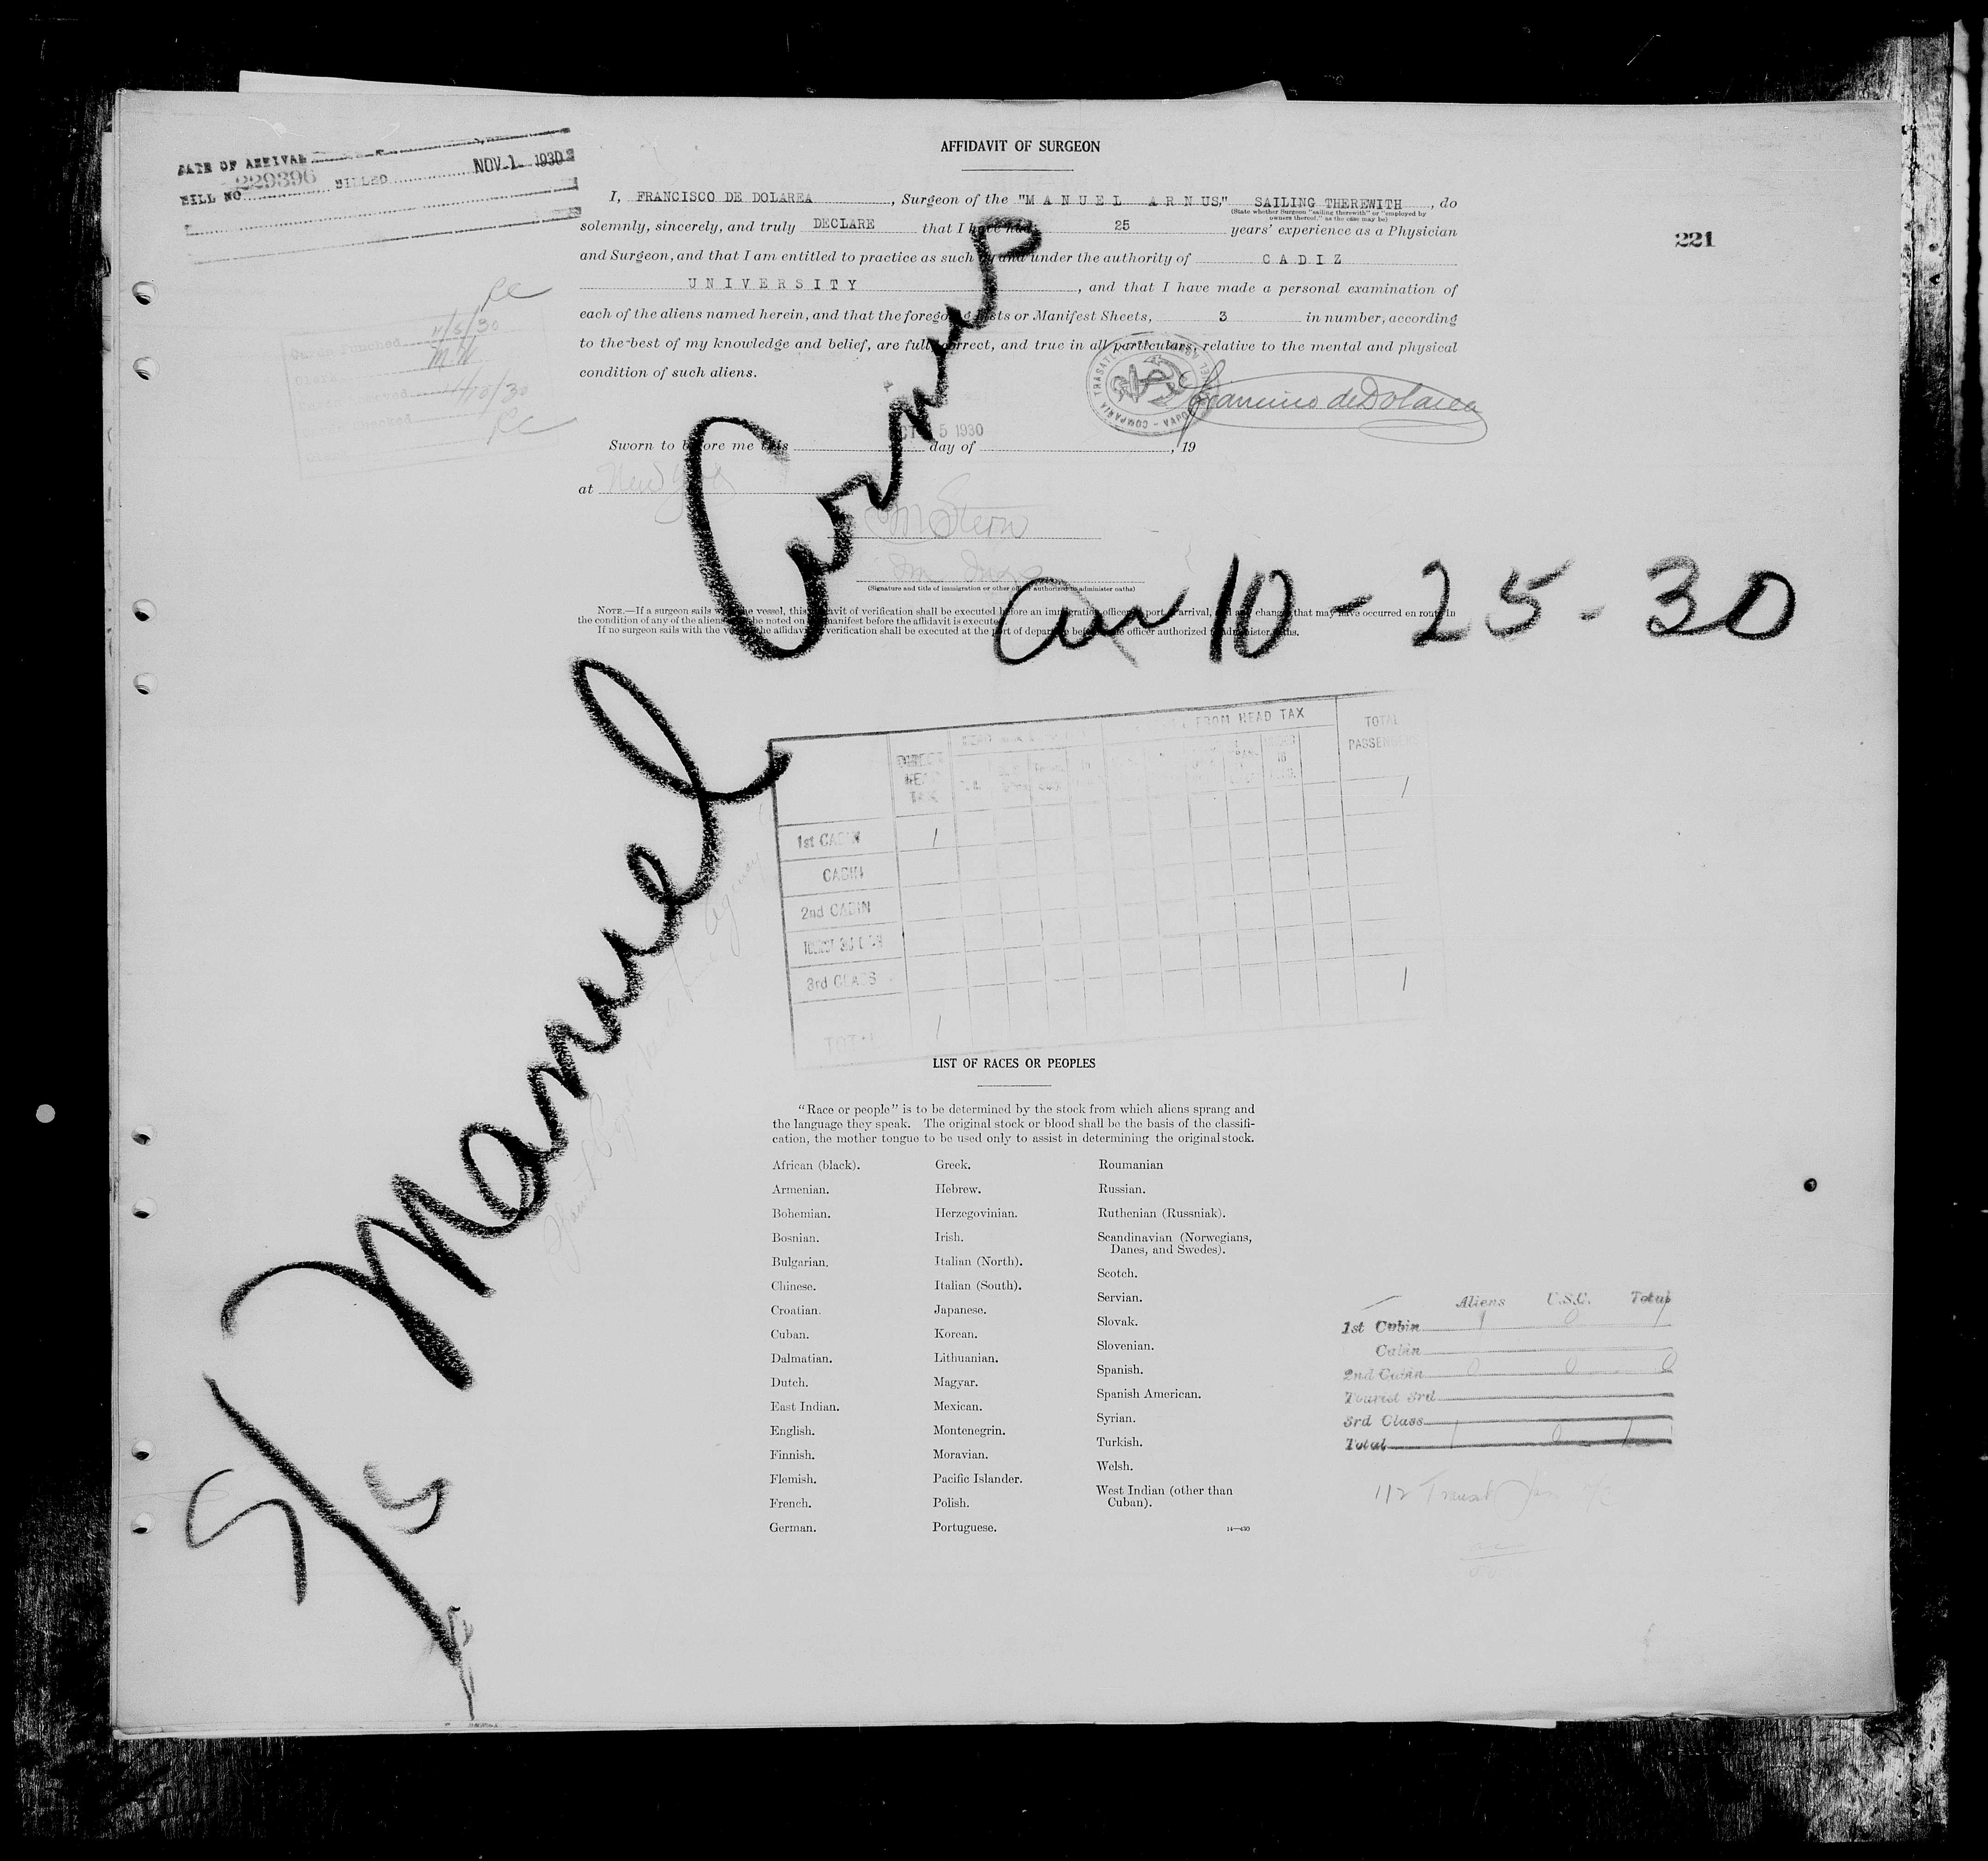 AFFIDAVIT OF SURGEON
DATE OF ARRIVAL
BILL NO 229396 BILLED NOV 1 1930
221
I, FRANCISCO DE DOLAREA, Surgeon of the "MANUEL ARNUS," SAILING THEREWITH, do
(State whether Surgeon "sailing therewith" or "employed by
owners thereof," as the case may be)
solemnly, sincerely, and truly DECLARE that I have had 25 years' experience as a Physician
and Surgeon, and that I am entitled to practice as such by and under the authority of CADIZ
UNIVERSITY, and that I have made a personal examination of
each of the aliens named herein, and that the foregoing Lists or Manifest Sheets, 3 in number, according
to the best of my knowledge and belief, are full, correct, and true in all particulars, relative to the mental and physical
condition of such aliens.
Cards Punched 11/5/30
MW
11/10/30
Checked
COMPAÑIA TRASATLANTICA
Francisco de Dolarea
5 1930
Sworn to before me this day of , 19
at New York
M Stern
(Signature and title of immigration or other officer authorized to administer oaths)
NOTE.—If a surgeon sails with the vessel, this affidavit of verification shall be executed before an immigration officer at port of arrival, and any changes that may have occurred en route in
the condition of any of the aliens shall be noted on the manifest before the affidavit is executed.
If no surgeon sails with the vessel, the affidavit of verification shall be executed at the port of departure before some officer authorized to administer oaths.
S/S Manuel Arnus
Arr 10-25-30
FROM HEAD TAX
DIRECT HEAD TAX
TOTAL PASSENGERS
1
1st CABIN 1
CABIN
2nd CABIN
TOURIST 3rd
3rd CLASS 1
TOTAL 1
LIST OF RACES OR PEOPLES
"Race or people" is to be determined by the stock from which aliens sprang and
the language they speak. The original stock or blood shall be the basis of the classifi-
cation, the mother tongue to be used only to assist in determining the original stock.
African (black).
Armenian.
Bohemian.
Bosnian.
Bulgarian.
Chinese.
Croatian.
Cuban.
Dalmatian.
Dutch.
East Indian.
English.
Finnish.
Flemish.
French.
German.
Greek.
Hebrew.
Herzegovinian.
Irish.
Italian (North).
Italian (South).
Japanese.
Korean.
Lithuanian.
Magyar.
Mexican.
Montenegrin.
Moravian.
Pacific Islander.
Polish.
Portuguese.
Roumanian
Russian.
Ruthenian (Russniak).
Scandinavian (Norwegians,
Danes, and Swedes).
Scotch.
Servian.
Slovak.
Slovenian.
Spanish.
Spanish American.
Syrian.
Turkish.
Welsh.
West Indian (other than
Cuban).
14—430
Aliens U.S.C. Total
1st Cabin 1 0 1
Cabin
2nd Cabin 0 0 0
Tourist 3rd
3rd Class
Total 1 0 1
112